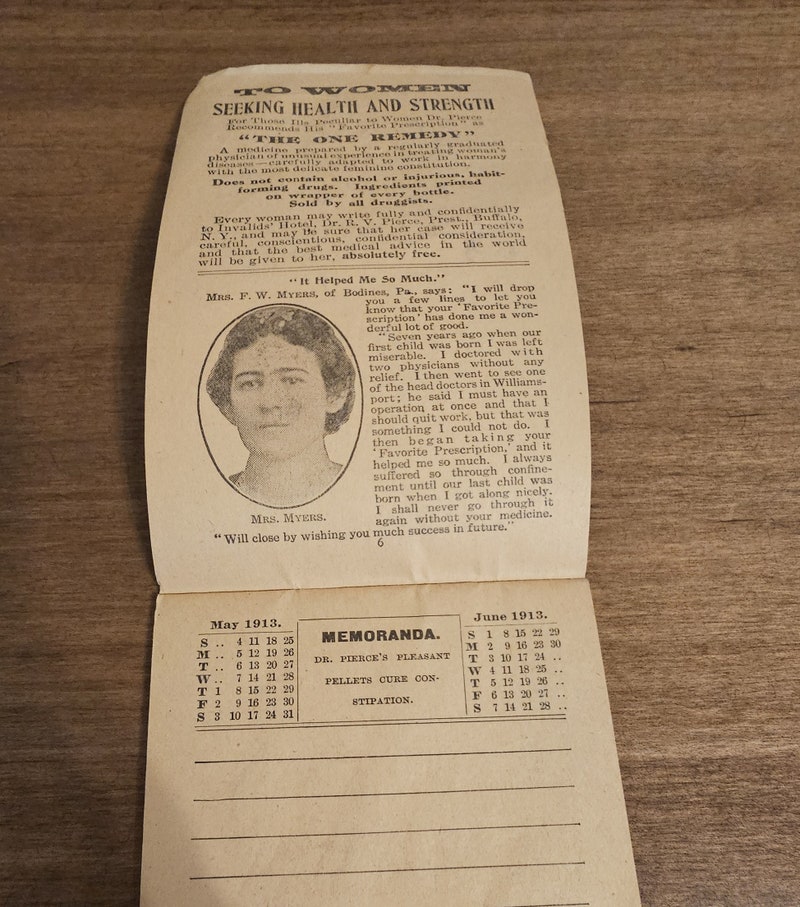 TO WOMEN
SEEKING HEALTH AND STRENGTH
For Those Ills Peculiar to Women Dr. Pierce
Recommends His "Favorite Prescription" as
"THE ONE REMEDY"
A medicine prepared by a regularly graduated
physician of unusual experience in treating woman's
diseases—carefully adapted to work in harmony
with the most delicate feminine constitution.
Does not contain alcohol or injurious, habit-
forming drugs. Ingredients printed
on wrapper of every bottle.
Sold by all druggists.
Every woman may write fully and confidentially
to Invalids' Hotel, Dr. R. V. Pierce, Prest., Buffalo,
N. Y., and may be sure that her case will receive
careful, conscientious, confidential consideration,
and that the best medical advice in the world
will be given to her, absolutely free.
"It Helped Me So Much."
MRS. F. W. MYERS, of Bodines, Pa., says: "I will drop
you a few lines to let you
know that your 'Favorite Pre-
scription' has done me a won-
derful lot of good.
"Seven years ago when our
first child was born I was left
miserable. I doctored with
two physicians without any
relief. I then went to see one
of the head doctors in Williams-
port; he said I must have an
operation at once and that I
should quit work, but that was
something I could not do. I
then began taking your
'Favorite Prescription,' and it
helped me so much. I always
suffered so through confine-
ment until our last child was
born when I got along nicely.
I shall never go through it
again without your medicine.
MRS. MYERS.
"Will close by wishing you much success in future."
6
May 1913.
S .. 4 11 18 25
M .. 5 12 19 26
T .. 6 13 20 27
W .. 7 14 21 28
T 1 8 15 22 29
F 2 9 16 23 30
S 3 10 17 24 31
MEMORANDA.
DR. PIERCE'S PLEASANT
PELLETS CURE CON-
STIPATION.
June 1913.
S 1 8 15 22 29
M 2 9 16 23 30
T 3 10 17 24 ..
W 4 11 18 25 ..
T 5 12 19 26 ..
F 6 13 20 27 ..
S 7 14 21 28 ..